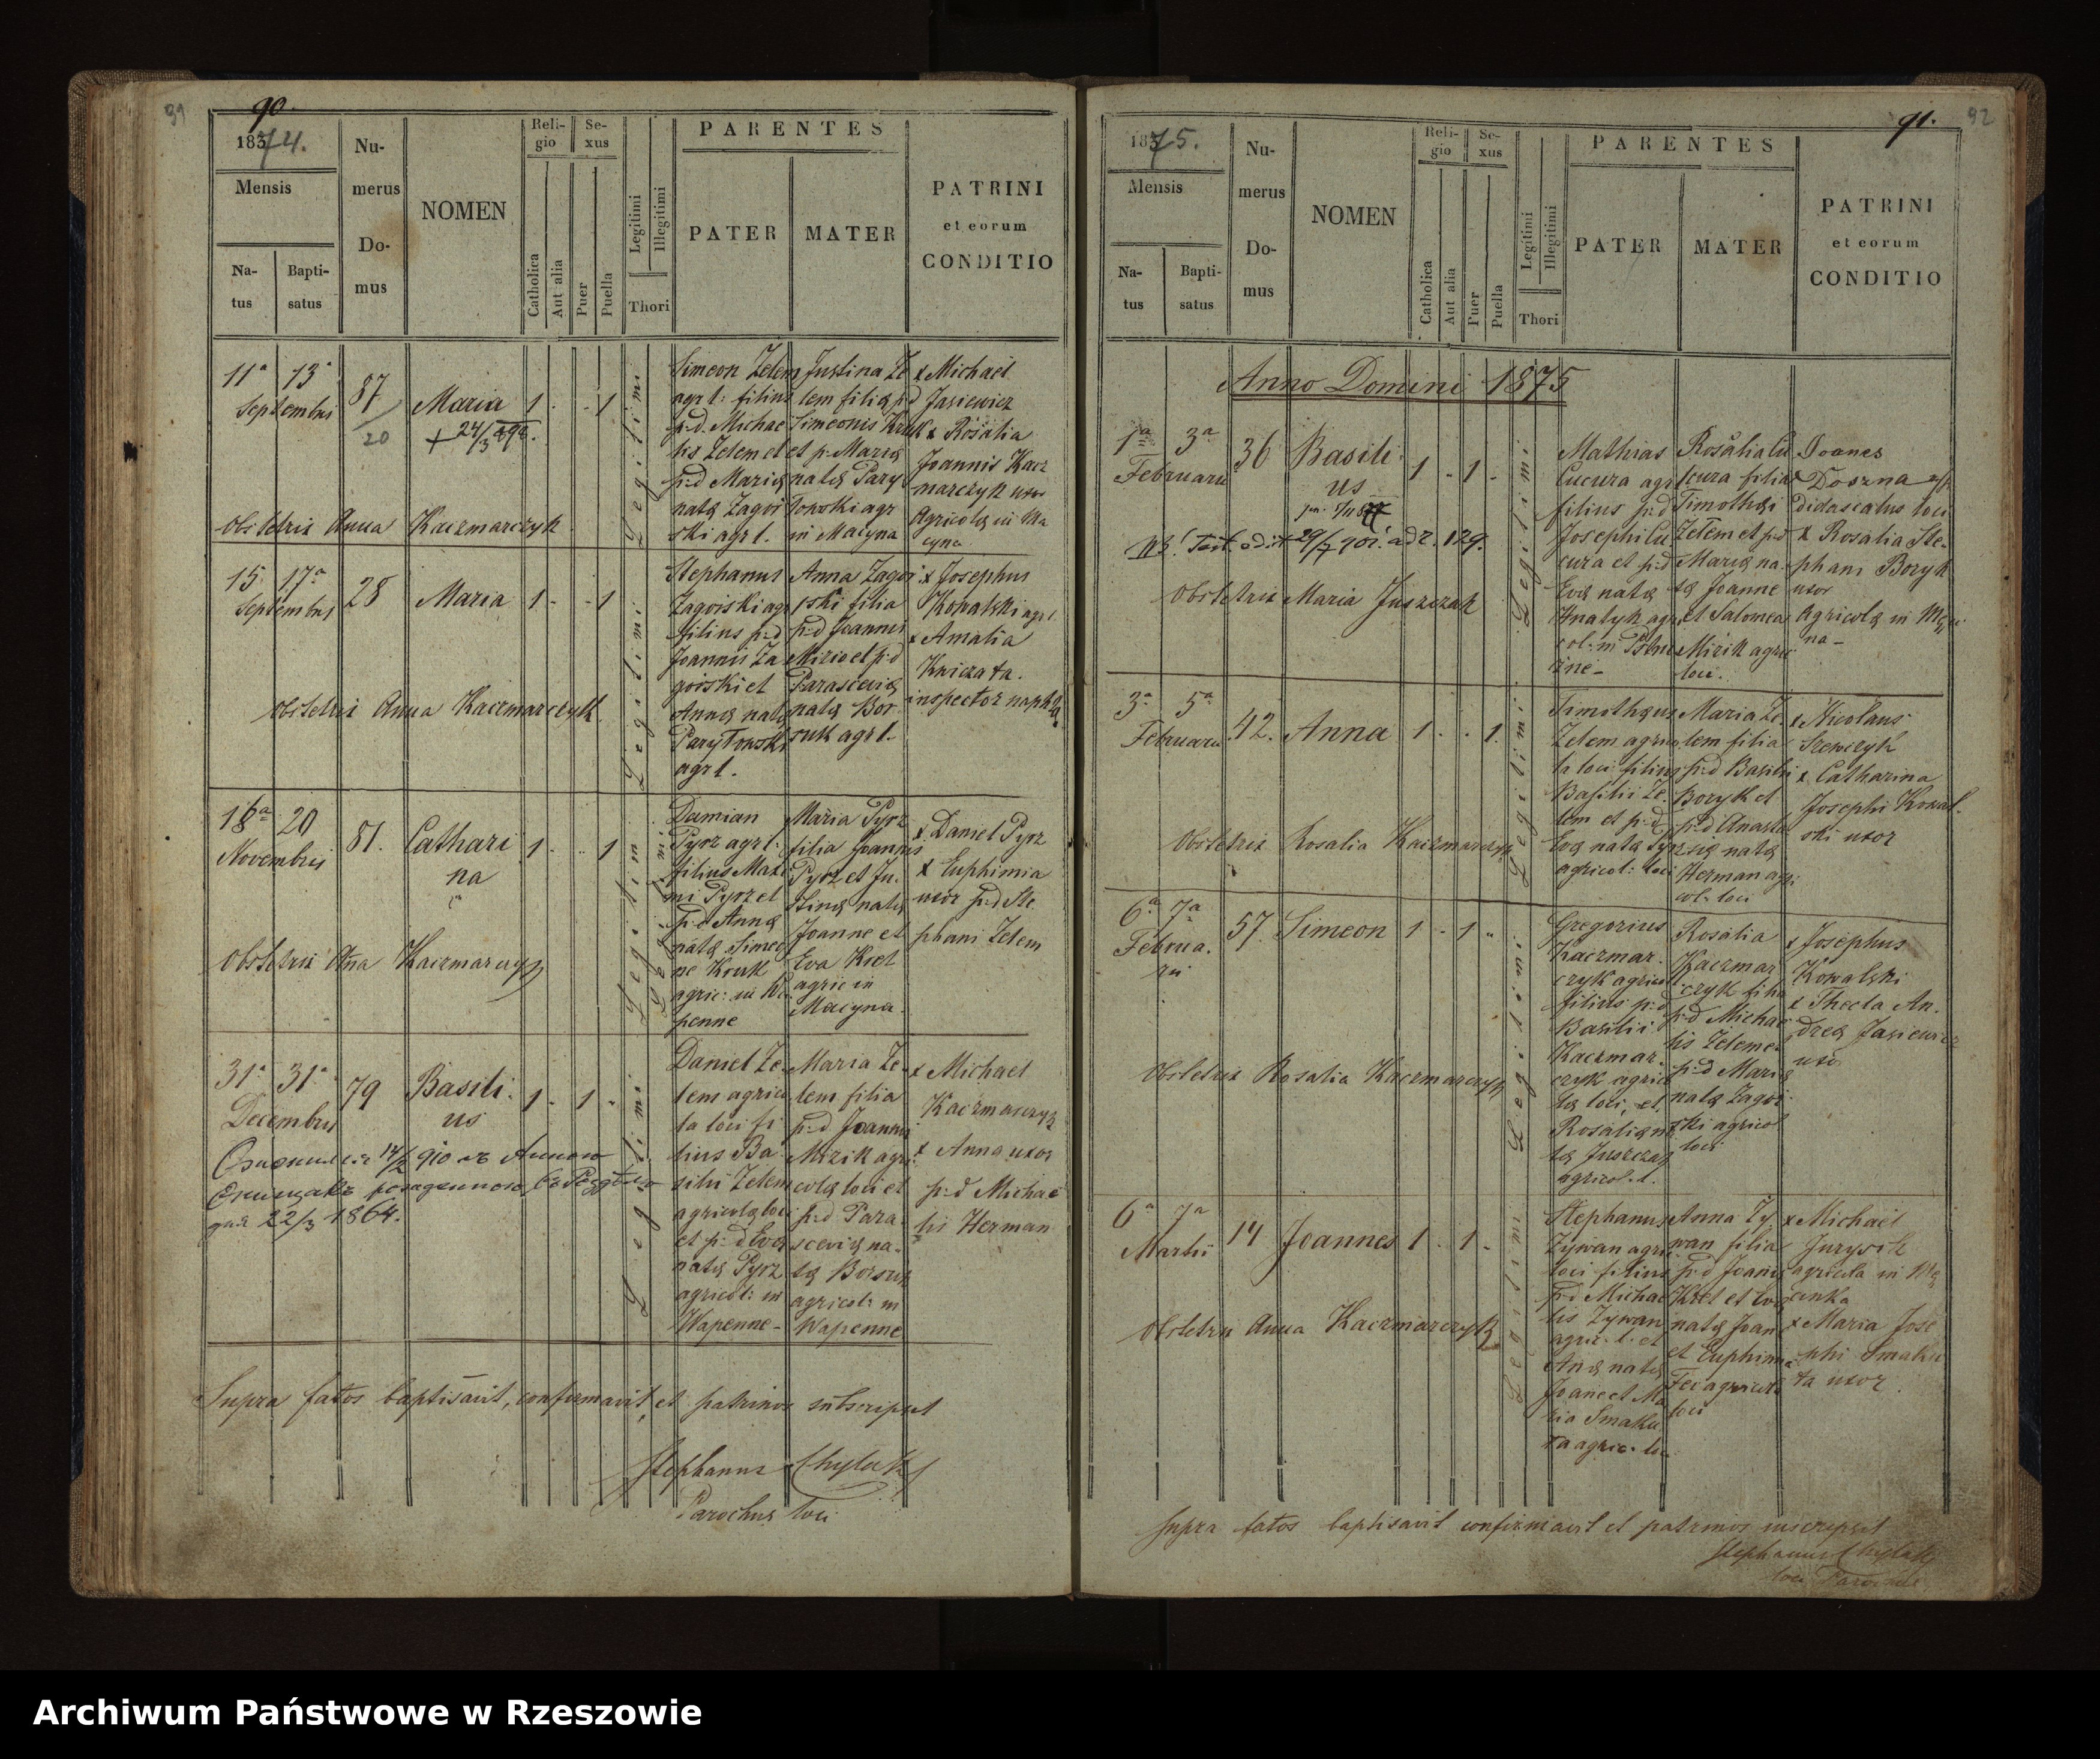 91
90.
1874.
Mensis
Na-
tus
Bapti-
satus
Nu-
merus
Do-
mus
NOMEN
Reli-
gio
Catholica
Aut alia
Se-
xus
Puer
Puella
Legitimi
Illegitimi
Thori
PARENTES
PATER
MATER
PATRINI
et eorum
CONDITIO
11ª 13ª
Septembris
87
20
Maria
+ 24/3
1 - - 1
Legitimi
Simeon Zelem
agr l: filius
p:d. Michae
lis Zelem et
p:d Mariæ
natæ Zagor
ski agr l.
Justina Ze
lem filia p:d
Simeonis Kruk
et p. Mariæ
natæ Pary
łowski agr
in Macyna
x Michael
Jasiewicz
x Rosalia
Joannis Kacz
marczyk uxor
Agricolæ in Ma
cyna
Obstetrix Anna Kaczmarczyk
15 17ª
Septembris
28
Maria
1 - - 1
Legitimi
Stephanus
Zagorski agr
filius p:d
Joannis Za
gorski et
Annæ natæ
Paryłowski
agr l.
Anna Zagor
ski filia
p:d Joannis
Mizio et p:d
Parascevią
natæ Bor
suk agr l.
x Josephus
Kowalski agr l
x Amalia
Kniczata.
inspector naphtæ
Obstetrix Anna Kaczmarczyk
18ª 20
Novembris
81.
Cathari
na
1 - - 1
Legitimi
Damian
Pyrz agr l:
filius Maxi
mi Pyrz et
p:d Annæ
natæ Simeo
ne Kruk
agric: in Wa
penne
Maria Pyrz
filia Joannis
Pyrz et Ju.
stinæ natæ
Joanne et
Eva Kret
agric in
Macyna.
x Daniel Pyrz
x Euphimia
uxor p:d Ste
phani Zelem
Obstetrix Ana Kaczmarczyk
31ª 31ª
Decembris
79
Basili.
us
1 - 1 -
Legitimi
Daniel Ze
lem agrico
la loci fi
lius Ba
silii Zelem
agricolæ loci
et p:d Evæ
natæ Pyrz
agricol: in
Wapenne-
Maria Ze
lem filia
p:d Joannis
Mizik agri
colæ loci et
p:d Para
sceviæ na-
tæ Borsuk
agricol: in
Wapenne
x Michael
Kaczmarczyk
x Anna uxor
p:d Michae
lis Herman
22/3 1864.
Supra fatos baptisavit, confirmavit, et patrinos subscripsit
Stephanus Chylak
Parochus loci
92
91.
1875.
Mensis
Na-
tus
Bapti-
satus
Nu-
merus
Do-
mus
NOMEN
Reli-
gio
Catholica
Aut alia
Se-
xus
Puer
Puella
Legitimi
Illegitimi
Thori
PARENTES
PATER
MATER
PATRINI
et eorum
CONDITIO
Anno Domini 1875
1ª 3ª
Februarii
36
Basili
us
1 - 1 -
Legitimi
Mathias
Cucura agr
filius p:d
Josephi Cu
cura et p:d
Evæ natæ
Hnatyk agri
col:
Rosalia Cu
cura filia
Timothæi
Zelem et p:d
Mariæ na.
tæ Joanne
et Salomea
Mizik agric
loci.
Joanes
Doszna
didascalus loci
x Rosalia Ste.
phani Boryk
uxor
Agricolæ in Mę
na-
Obstetrix Maria Juszczak
3ª 5ª
Februarii
42.
Anna
1 - - 1.
Legitimi
Timothæus
Zelem agrico
la loci filius
Basilii Ze.
lem et p:d
Evæ natæ Pyrz
agricol: loci
Maria Ze.
lem filia
p:d Basilii
Boryk et
p:d Anasta
ziæ natæ
Herman agri
col: loci
x Nicolaus
Szewczyk
x Catharina
Josephi Kowal.
ski uxor
Obstetrix Rosalia Kaczmarczyk
6ª 7ª
Februa.
rii
57.
Simeon
1 - 1 -
Legitimi
Gregorius
Kaczmar.
czyk agricol
filius p:d
Basilii
Kaczmar.
czyk agrico
læ loci, et
Rosaliæ na
tæ Juszczak
agricol. l.
Rosalia
Kaczmar
czyk filia
p:d Michae
lis Zelem et
p:d Mariæ
natæ Zagor
ski agricol
loci
x Josephus
Kowalski
x Thecla An.
dreæ Jasiewicz
uxor
Obstetrix Rosalia Kaczmarczyk
6ª 7ª
Martii
14
Joannes
1 - 1 -
Legitimi
Stephanus
Zywan agri
loci filius
p:d Michae
lis Zywan
agric. l. et
Anæ natæ
Joane et Ma
ria Smaku
ta agric. loci
Anna Zy.
wan filia
p:d Joanis
Kret et Evæ
natæ Joan
et Euphimia
Fei agricolæ
loci
x Michael
Jurysik
agricola in Mę
cinka
x Maria Jose
phi Smaku
ta uxor.
Obstetrix Anna Kaczmarczyk
Supra fatos baptisavit confirmavit et patrinos inscripsit
Stephanus Chylak
loci Parochus
Archiwum Państwowe w Rzeszowie